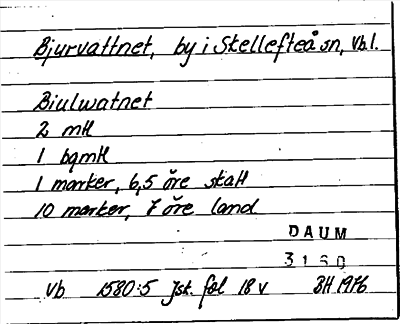 Bjurvattnet, by i Skellefteå sn, Vbl.
Biulwatnet
2 mtl
1 bqmtl
1 marker, 6,5 öre skatt
10 marker, 7 öre land
DAUM
3160
Vb 1580:5 Jsk. fol 18 v BH 1976